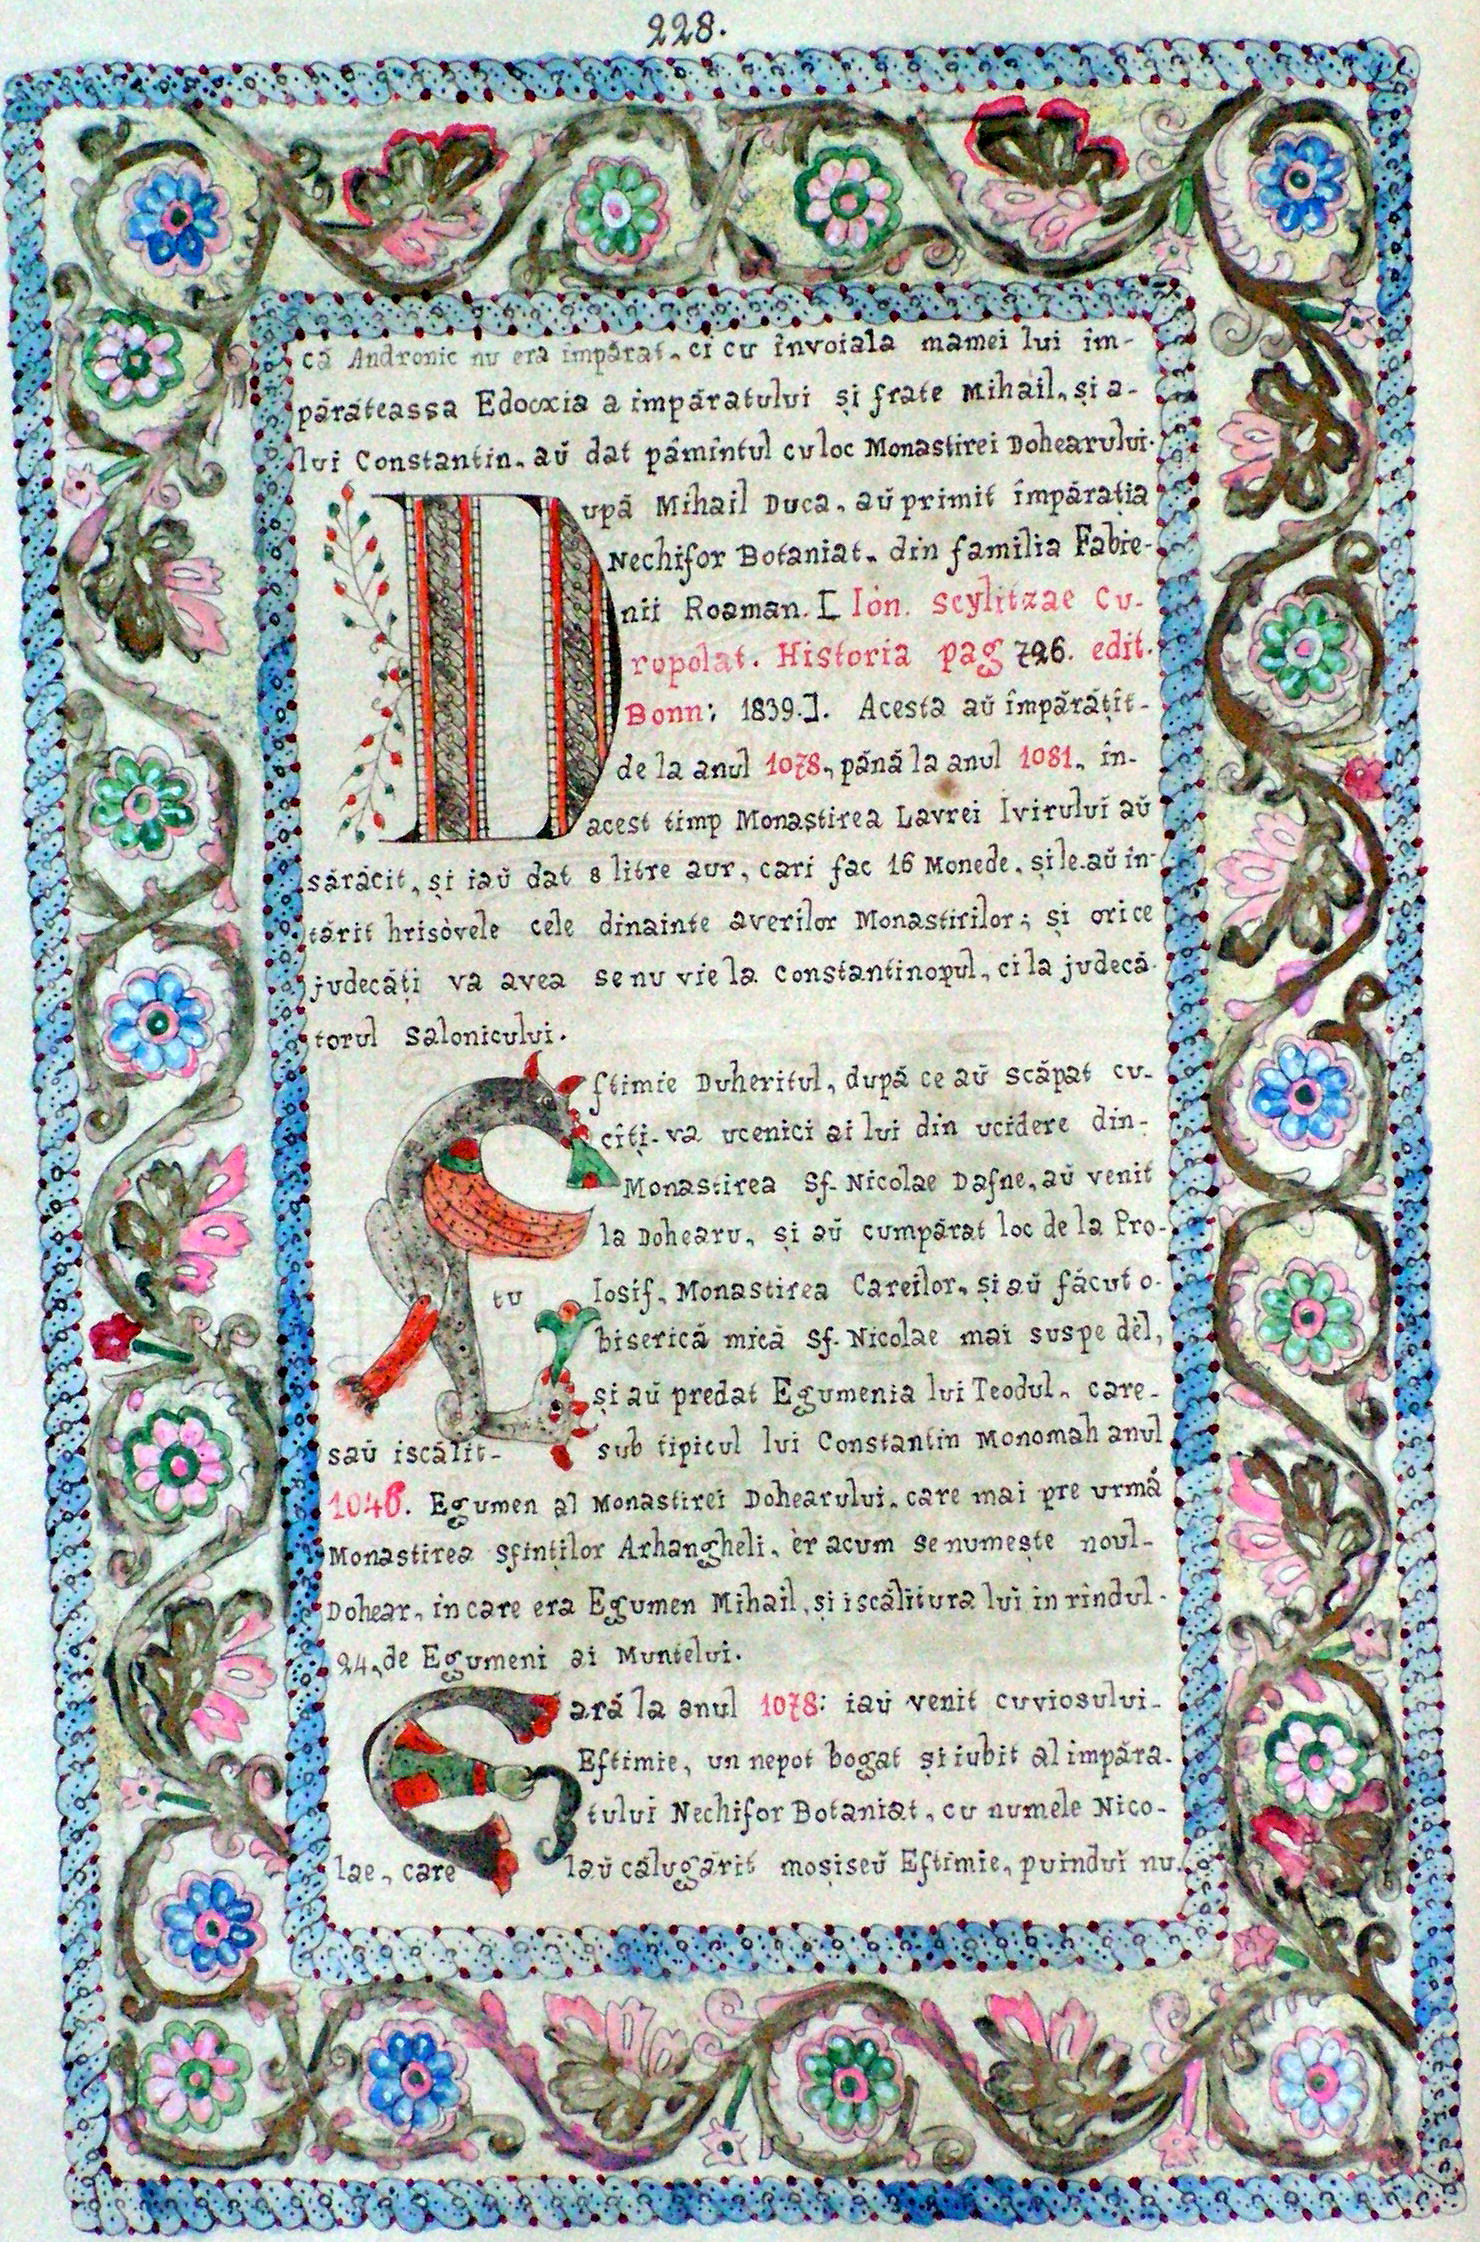 228.
că Andronic nu era împărat. ci cu învoiala mamei lui îm-
părăteassa Edocxia a împăratului și frate Mihail, și a-
lui Constantin. aŭ dat pămîntul cu loc Monastirei Dohearului.
După Mihail Duca. aŭ primit împărația
Nechifor Botaniat. din familia Fabie-
nii Roaman. [ Iòn. Scylitzae Cu-
ropolat. Historia pag 726. edit.
Bonn: 1839.]. Acesta aŭ împărățit-
de la anul 1078, până la anul 1081. în-
acest timp Monastirea Lavrei Ivirului aŭ
sărăcit, și iaŭ dat 8 litre aur, cari fac 16 Monede. și le-aŭ în-
tărit hrisòvele cele dinainte averilor Monastirilor; și orice
judecăți va avea se nu vie la Constantinopul, ci la judecă-
torul Salonicului.
Eftimie Duheritul, după ce aŭ scăpat cu-
cîți-va ucenici ai lui din ucidere din-
Monastirea Sf. Nicolae Dafne, aŭ venit
la Dohearu, și aŭ cumpărat loc de la Pro-
tu Iosif. Monastirea Careilor. și aŭ făcut o-
biserică mică Sf. Nicolae mai sus pe dèl,
și aŭ predat Egumenia lui Teodul. care-
saŭ iscălit- sub tipicul lui Constantin Monomah anul
1046. Egumen al Monastirei Dohearului. care mai pre urmă
Monastirea Sfinților Arhangheli. èr acum se numește noul-
Dohear, in care era Egumen Mihail, și iscălitura lui in rîndul-
24, de Egumeni ai Muntelui.
Eară la anul 1078: iaŭ venit cuviosului-
Eftimie, un nepot bogat și iubit al impăra-
tului Nechifor Botaniat. cu numele Nico-
lae, care laŭ călugărit moșiseŭ Eftimie, puindui nu.